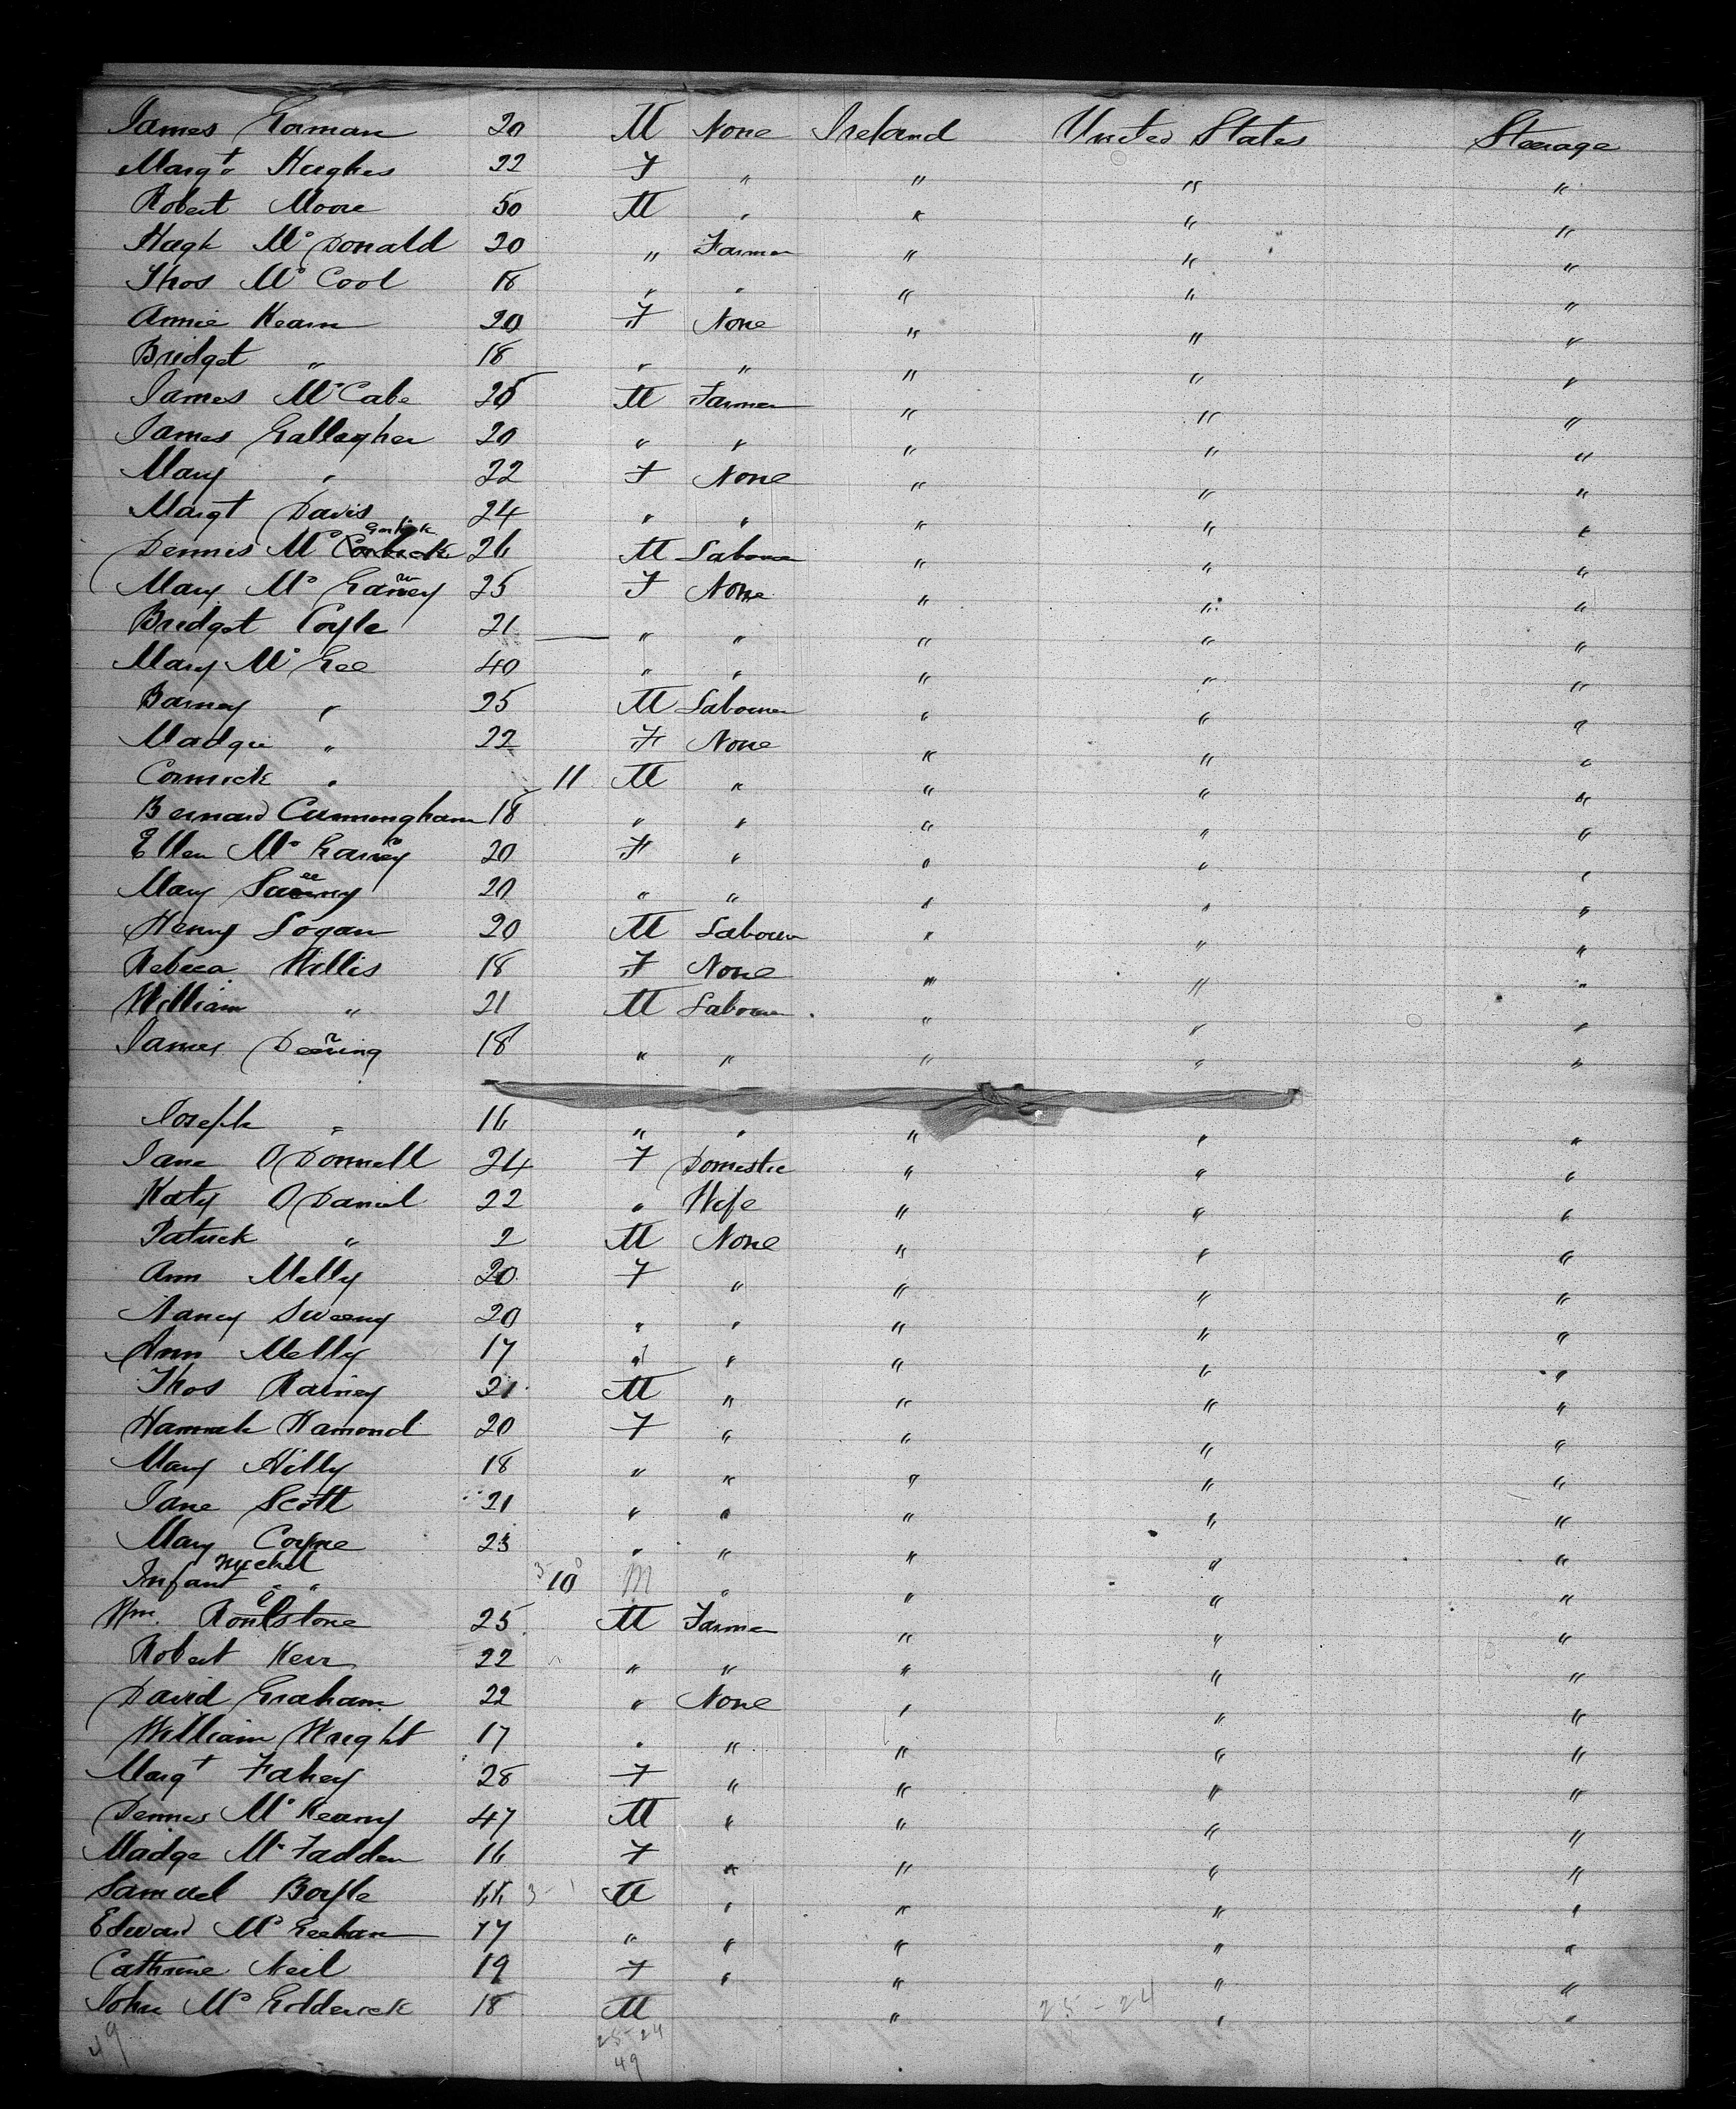 James Gorman 20 M None Ireland United States Steerage
Margt Hughes 22 F " " " "
Robert Moore 50 M " " " "
Hugh McDonald 20 " Farmer " " "
Thos McCool 18 " " " " "
Annie Kearn 20 F None " " "
Bridget " 18 " " " " "
James McCabe 25 M Farmer " " "
James Gallagher 20 " " " " "
Mary " 22 F None " " "
Margt Davis 24 " " " " "
Dennis Mc 26 M Labourer " " "
Mary Mc 25 F None " " "
Bridget Coyle 21 " " " " "
Mary McGee 40 " " " " "
Barney " 25 M Labourer " " "
Madge " 22 F None " " "
Cormick " 11 M " " " "
Bernard Cunningham 18 " " " " "
Ellen Mc 20 F " " " "
Mary 20 " " " " "
Henry Logan 20 M Labourer " " "
Rebeca Willis 18 F None " " "
William " 21 M Labourer " " "
James Deering 18 " " " " "
Joseph " 16 " " " " "
Jane O'Donnell 24 F Domestic " " "
Katy O'Daniel 22 " Wife " " "
Patrick " 2 M None " " "
Ann Melly 20 F " " " "
Nancy Sweeny 20 " " " " "
Ann Melly 17 " " " " "
Thos Rainey 21 M " " " "
Hannah Hamond 20 F " " " "
Mary Hilly 18 " " " " "
Jane Scott 21 " " " " "
Mary Coyne 23 " " " " "
Infant Michel " 10 M " " " "
Wm. Roulstone 25 M Farmer " " "
Robert Kerr 22 " " " " "
David Graham 22 " None " " "
William Wright 17 " " " " "
Margt Fahey 28 F " " " "
Dennis McKeany 47 M " " " "
Madge McFadden 16 F " " " "
Samuel Boyle M " " " "
Edward McGeehan 17 " " " " "
Cathrine Neil 19 F " " " "
John McGolderick 18 M " " "
25-24
49 25-24
49